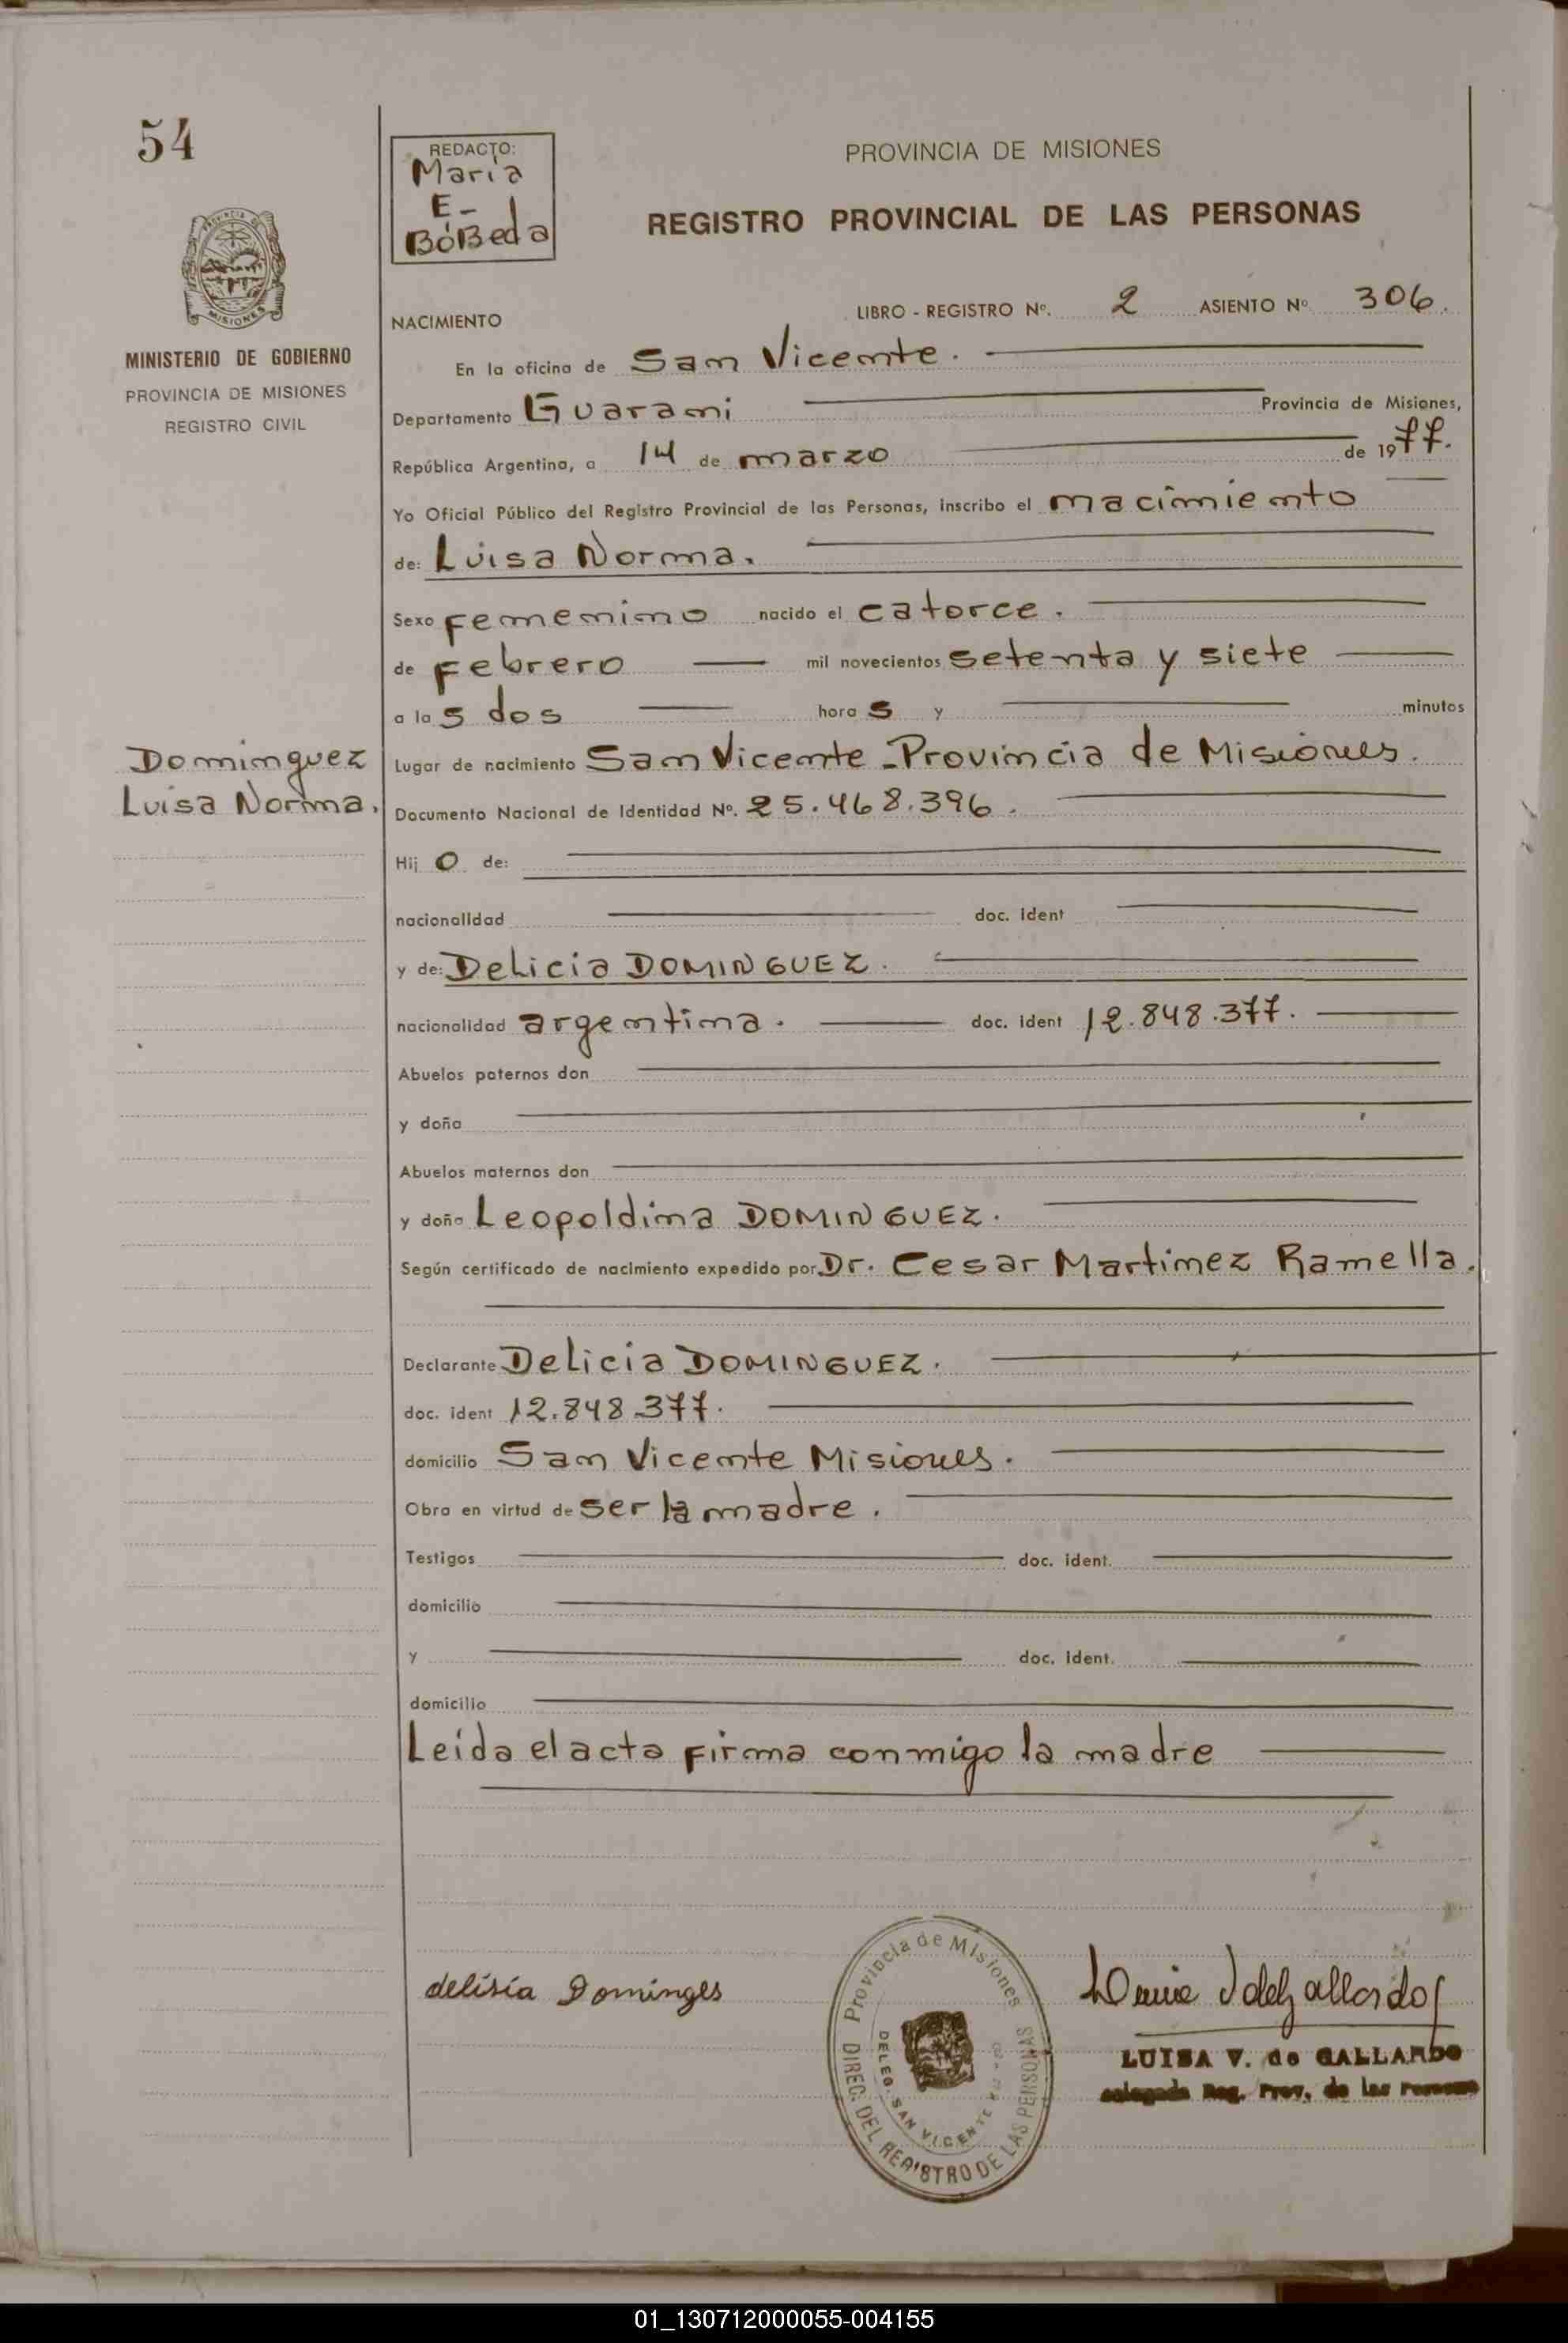 54
REDACTO:
Maria
E-
BóBeda
PROVINCIA DE MISIONES
REGISTRO PROVINCIAL DE LAS PERSONAS
PROVINCIA DE
MISIONES
MINISTERIO DE GOBIERNO
PROVINCIA DE MISIONES
REGISTRO CIVIL
NACIMIENTO
LIBRO - REGISTRO Nº. 2 ASIENTO Nº 306.
En la oficina de San Vicente.
Departamento Guarani Provincia de Misiones,
República Argentina, a 14 de marzo de 1977.
Yo Oficial Público del Registro Provincial de las Personas, inscribo el nacimiento
de: Luisa Norma.
Sexo femenino nacido el catorce.
de Febrero mil novecientos setenta y siete
a la s dos hora s y minutos
Dominguez
Luisa Norma.
Lugar de nacimiento San Vicente - Provincia de Misiones.
Documento Nacional de Identidad Nº. 25.468.396.
Hij o de:
nacionalidad doc. ident
y de: Delicia DOMINGUEZ.
nacionalidad argentina. doc. ident 12.848.377.
Abuelos paternos don
y doña
Abuelos maternos don
y doña Leopoldina DOMINGUEZ.
Según certificado de nacimiento expedido por Dr. Cesar Martinez Ramella.
Declarante Delicia DOMINGUEZ.
doc. ident 12.848.377.
domicilio San Vicente Misiones.
Obra en virtud de ser la madre.
Testigos doc. ident.
domicilio
y doc. ident.
domicilio
Leida el acta firma conmigo la madre
delisia Dominges
Provincia de Misiones
DIREC. DEL REGISTRO DE LAS PERSONAS
DELEG. SAN VICENTE
LUISA V. de GALLARDO
Delegada Reg. Prov. de las Personas
01_130712000055-004155